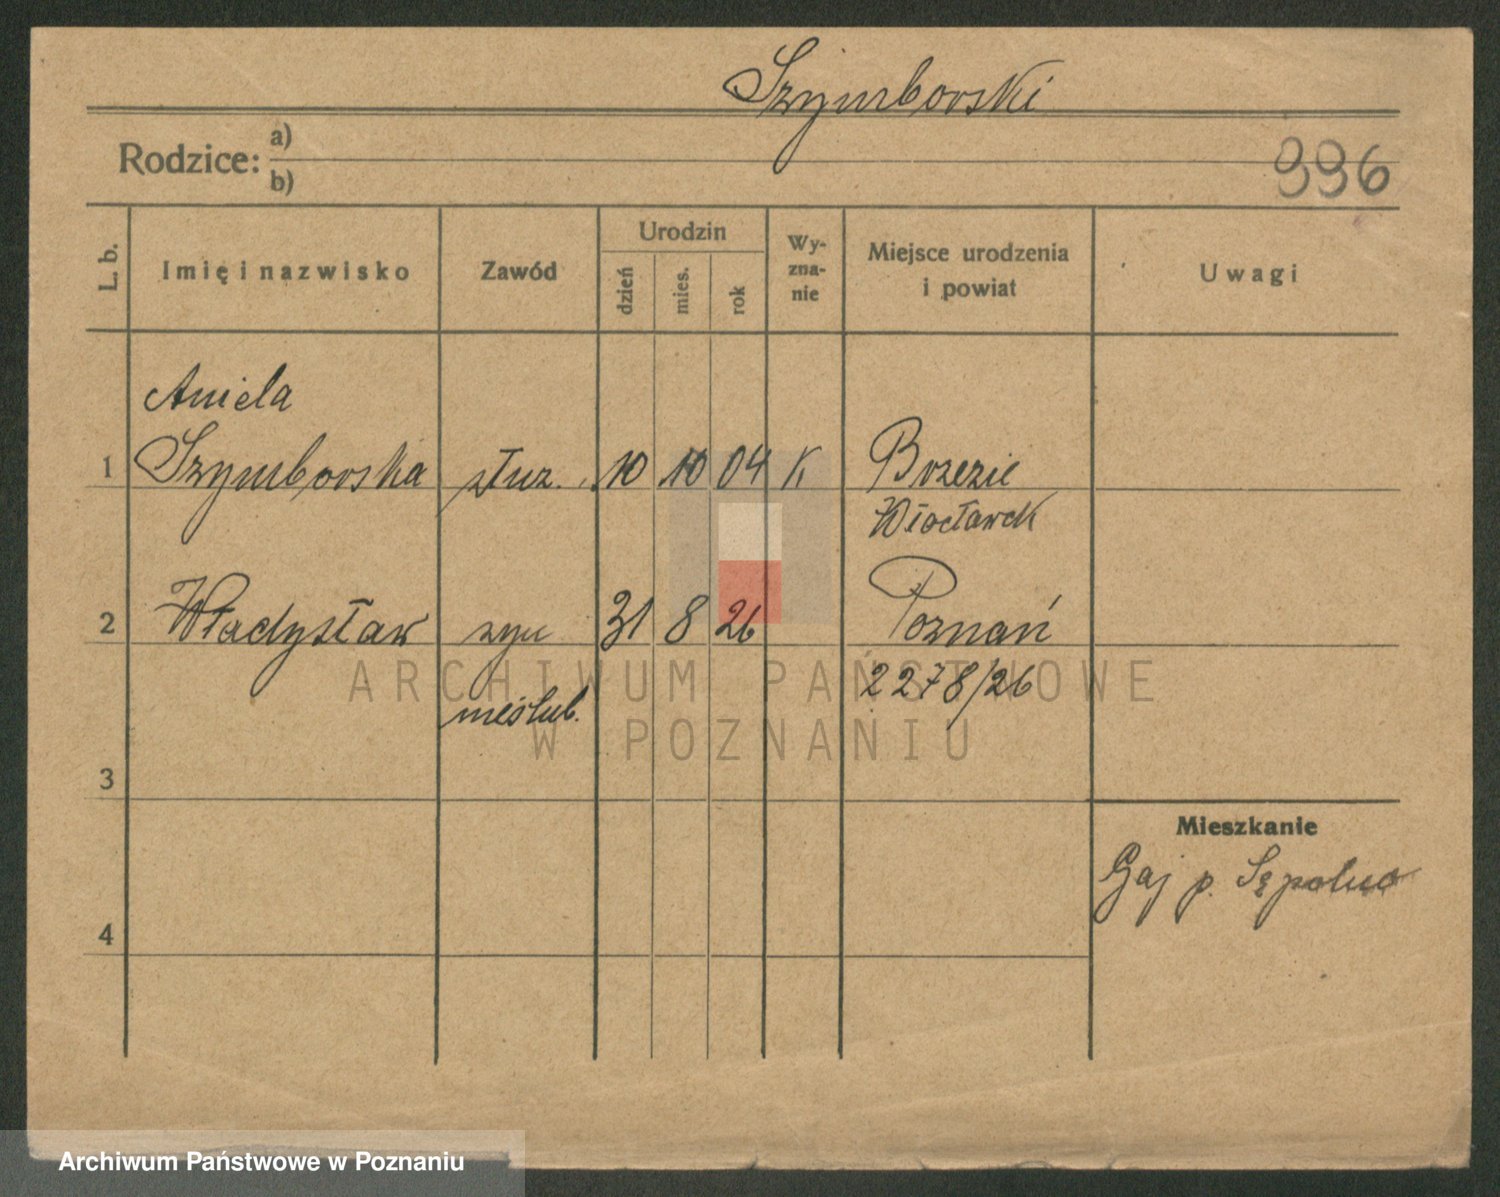 Szymborski
Rodzice: a)
b)
996
L. b.
Imię i nazwisko
Zawód
Urodzin
dzień
mies.
rok
Wy-
zna-
nie
Miejsce urodzenia
i powiat
Uwagi
Aniela
1 Szymborska służ. 10 10 04 K Brzezie
Włocławek
2 Władysław syn 31 8 26 Poznań
nieślub. 2278/26
3
Mieszkanie
Gaj p. Sępolno
4
ARCHIWUM PAŃSTWOWE
W POZNANIU
Archiwum Państwowe w Poznaniu